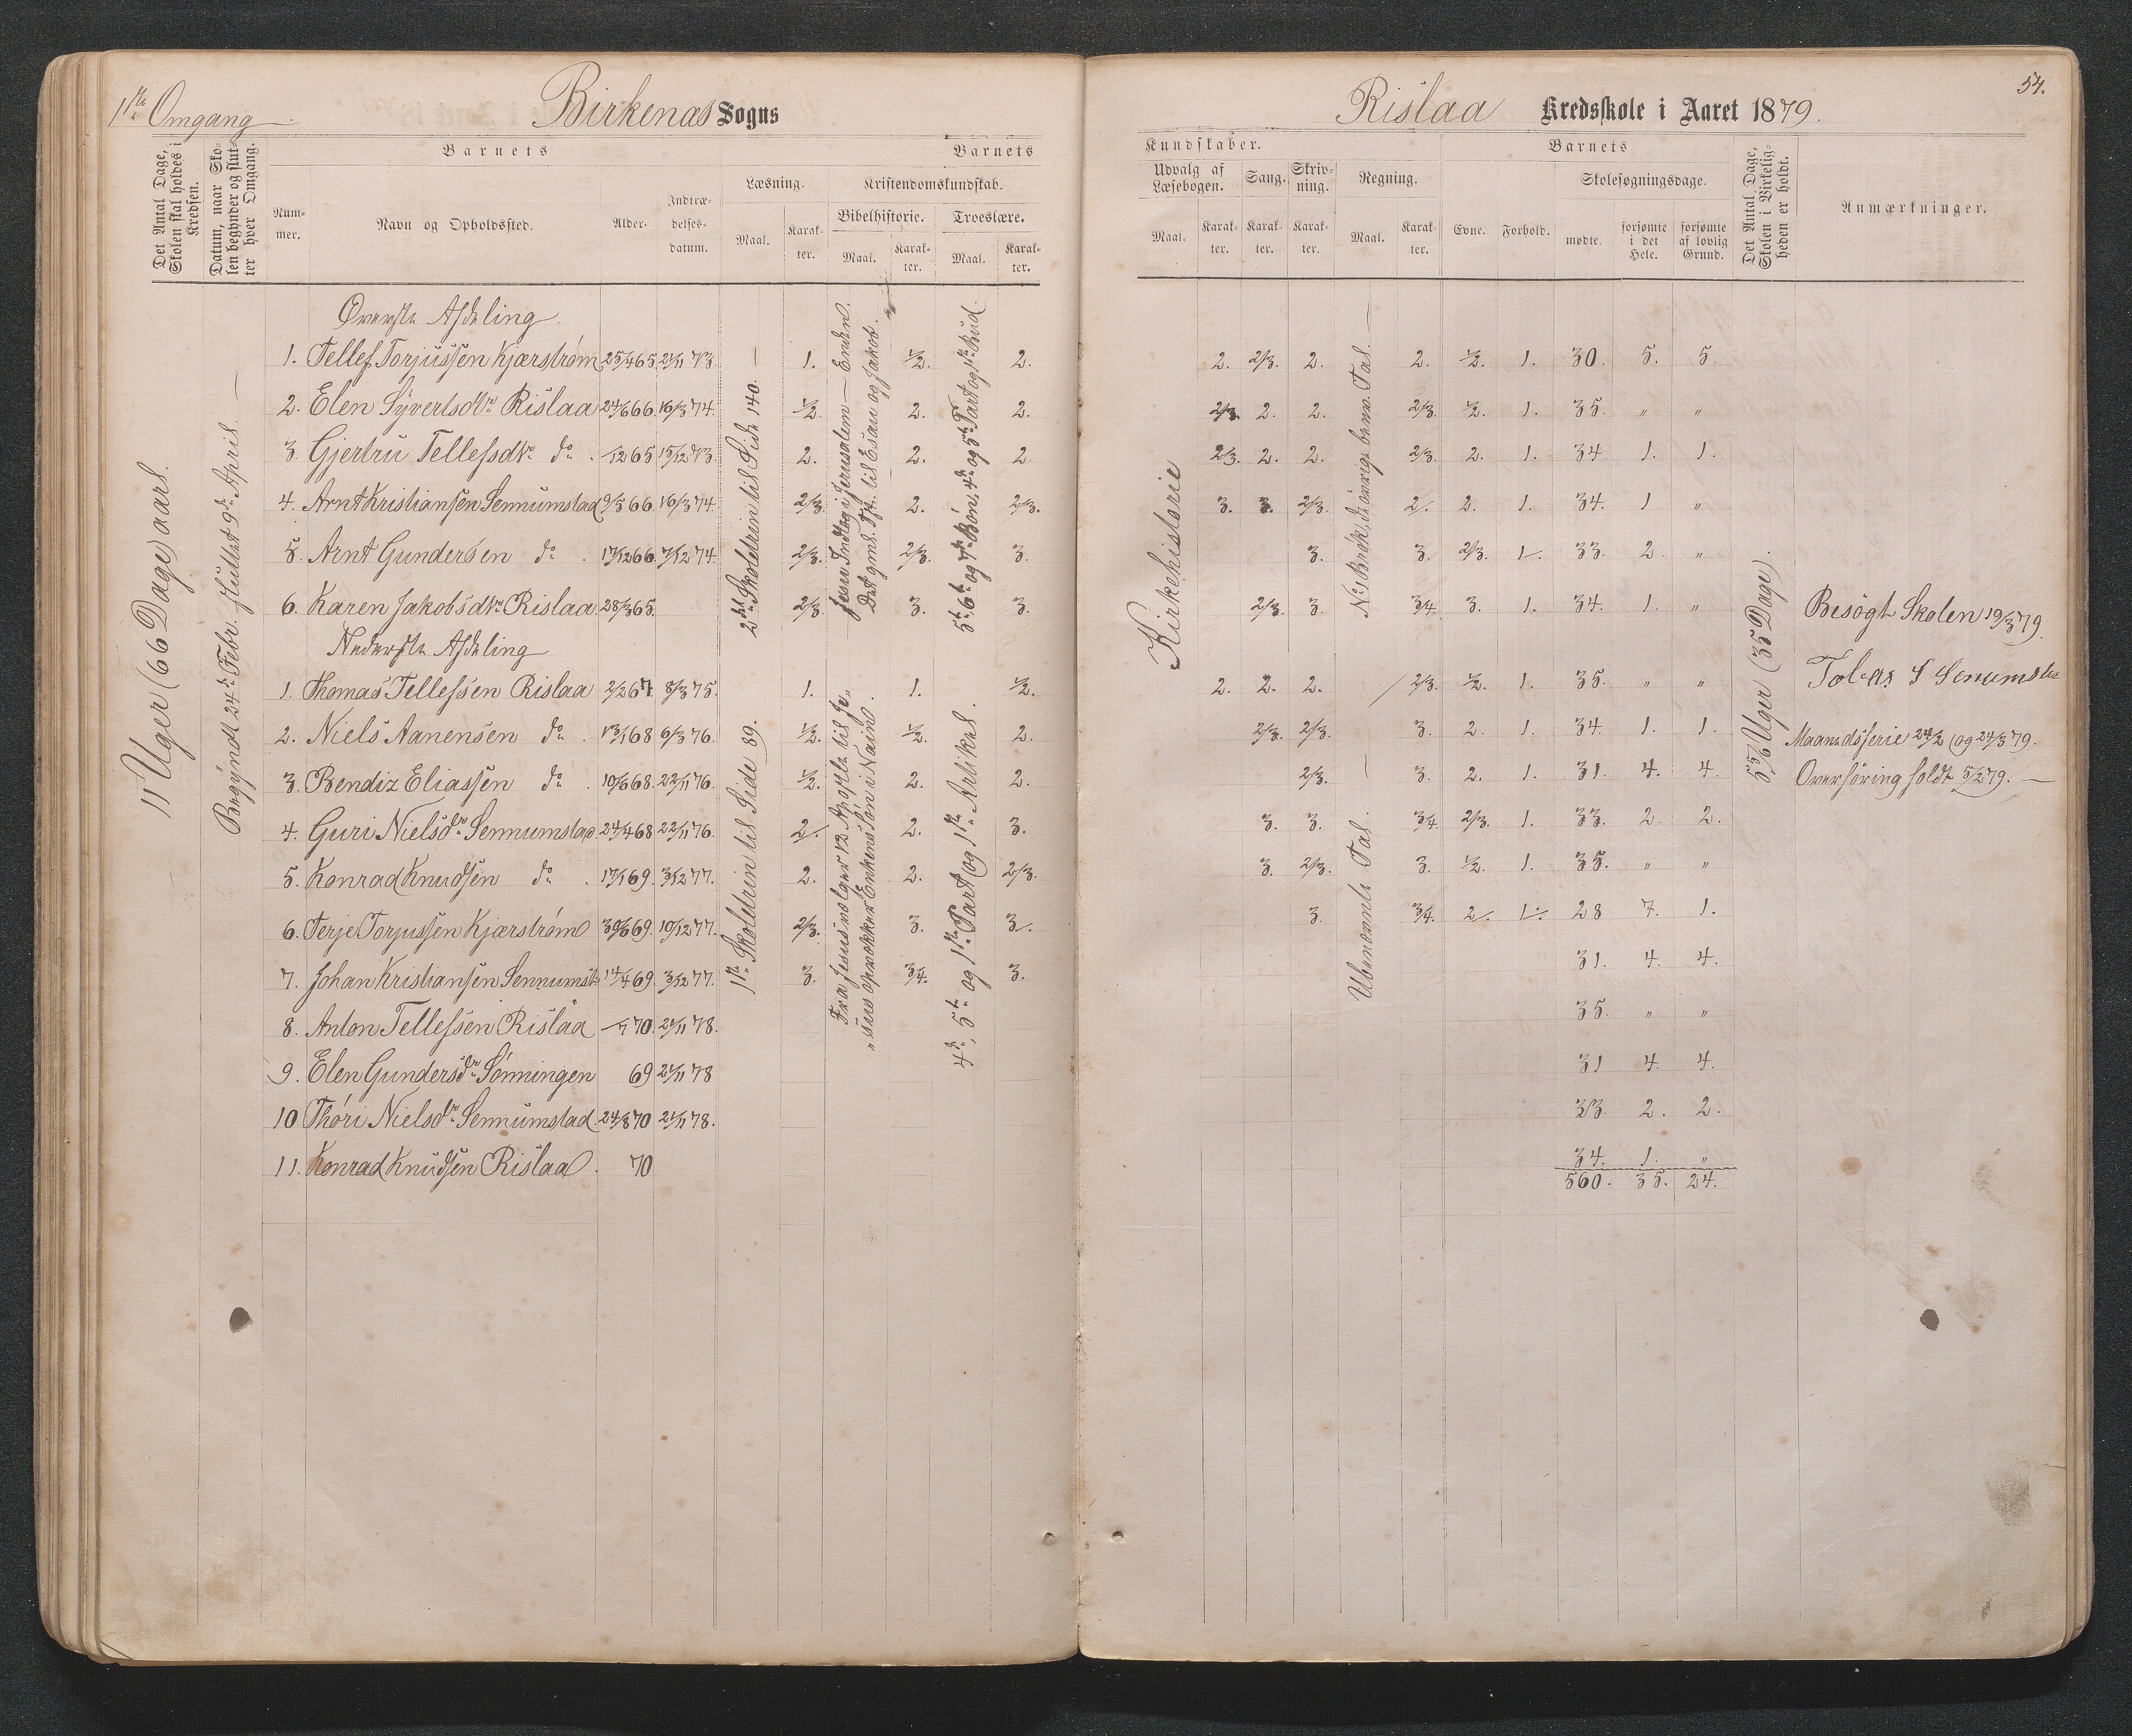 1ste Omgang
Birkenæs Sogns
Det Antal Dage, Skolen skal holdes i Kredsen.
Datum, naar Skolen begynder og slutter hver Omgang.
Barnets
Barnets
Nummer.
Navn og Opholdssted.
Alder.
Indtrædelses-datum.
Læsning.
Kristendomskundskab.
Bibelhistorie.
Troeslære.
Maal.
Karakter.
Maal.
Karakter.
Maal.
Karakter.
11 Uger (66 Dage) aarl.
Begyndt 24de Febr. sluttet 9de April.
Øverste Afdeling.
1. Tellef Torjussen Kjærstrøm 25/4 65 21/11 73. 1. 1/2. 2.
2. Elen Syvertsdtr Rislaa 24/6 66. 16/3 74. 1/2 2. 2.
3. Gjertru Tellefsdtr do. /12 65 15/12 73. 2. 2. 2
4. Arnt Kristiansen Sennumstad 9/5 66. 16/3 74. 2/3. 2. 2/3.
5. Arnt Gundersen do. 17/12 66. 7/12 74. 2/3. 2/3. 3.
6. Karen Jakobsdtr Rislaa 28/3 65. 2/3. 3. 3.
2den Skoletrin til Side 140.
Jesu Indtog i Jerusalem — Enden.
Det gml. Tft. til Esau og Jakob.
5te, 6te og 7de Bøn, 4de og 5te Part og 1ste Bud.
Nederste Afdeling
1. Thomas Tellefsen Rislaa 2/2 67. 8/3 75. 1. 1. 1/2.
2. Niels Aanensen do. 13/1 68 6/3 76. 1/2. 1/2. 2.
3. Bendix Eliassen do. 10/6 68. 22/11 76. 1/2. 2. 2.
4. Guri Nielsdr Sennumstad 24/4 68 22/11 76. 2/. 2. 3.
5. Konrad Knudsen do. 17/1 69. 3/12 77. 2. 2. 2/3.
6. Terje Torjussen Kjærstrøm 30/6 69. 10/12 77. 2/3. 3. 3/.
7. Johan Kristiansen Sennumst. 14/4 69. 3/12 77. 3. 3/4. 3.
8. Anton Tellefsen Rislaa /7 70. 21/11 78.
9. Elen Gundersdr Sønningen 69 21/11 78
10 Thøri Nielsdtr Sennumstad 24/8 70 21/11 78.
11. Konrad Knudsen Rislaa. 70
1ste Skoletrin til Side 89.
Fra Jesus vælger 12 Apostle til Je„
„sus opvækker Enkens Søn i Nain.
4de, 5te og 1ste Part og 1ste Artikel.
54.
Rislaa Kredsskole i Aaret 1879.
Kundskaber.
Barnets
Udvalg af Læsebogen.
Sang.
Skrivning.
Regning.
Skolesøgningsdage.
Det Antal Dage, Skolen i Virkeligheden er holdt.
Anmærkninger.
Maal.
Karakter.
Karakter.
Karakter.
Maal.
Karakter.
Evne.
Forhold.
mødte.
forsømte i det Hele.
forsømte af lovlig Grund.
Kirkehistorie
2. 2/3. 2. 2. 1/2. 1. 30. 5. 5.
2/3. 2. 2. 2/3. 1/2. 1. 35. „ „
2/3. 2. 2. 2/3. 2. 1. 34 1. 1.
3. 3. 2/3. 2/. 2. 1. 34. 1 „
3. 3. 2/3. 1/. 33. 2. „
2/3. 3. 3/4. 3. 1. 34. 1. „
2. 2. 2. 2/3. 1/2. 1. 35. „ „
2/3. 2/3. 3. 2. 1. 34. 1. 1.
2/3. 3. 2. 1. 31. 4. 4.
3. 3. 3/4. 2/3. 1. 33. 2. 2.
3. 2/3. 3. 1/2. 1. 35. „ „
3. 3/4. 2/. 1/. 28 7. 1.
31. 4. 4.
35. „ „
31 4. 4.
33. 2. 2.
34. 1. „
560. 35. 24.
Ubenævnte Tal.
5 5/6 Uger (35 Dage)
Besøgt Skolen 19/3 79.
Maanedsferie 24/2 og 24/3 79.
Overhøring holdt 5/2 79.